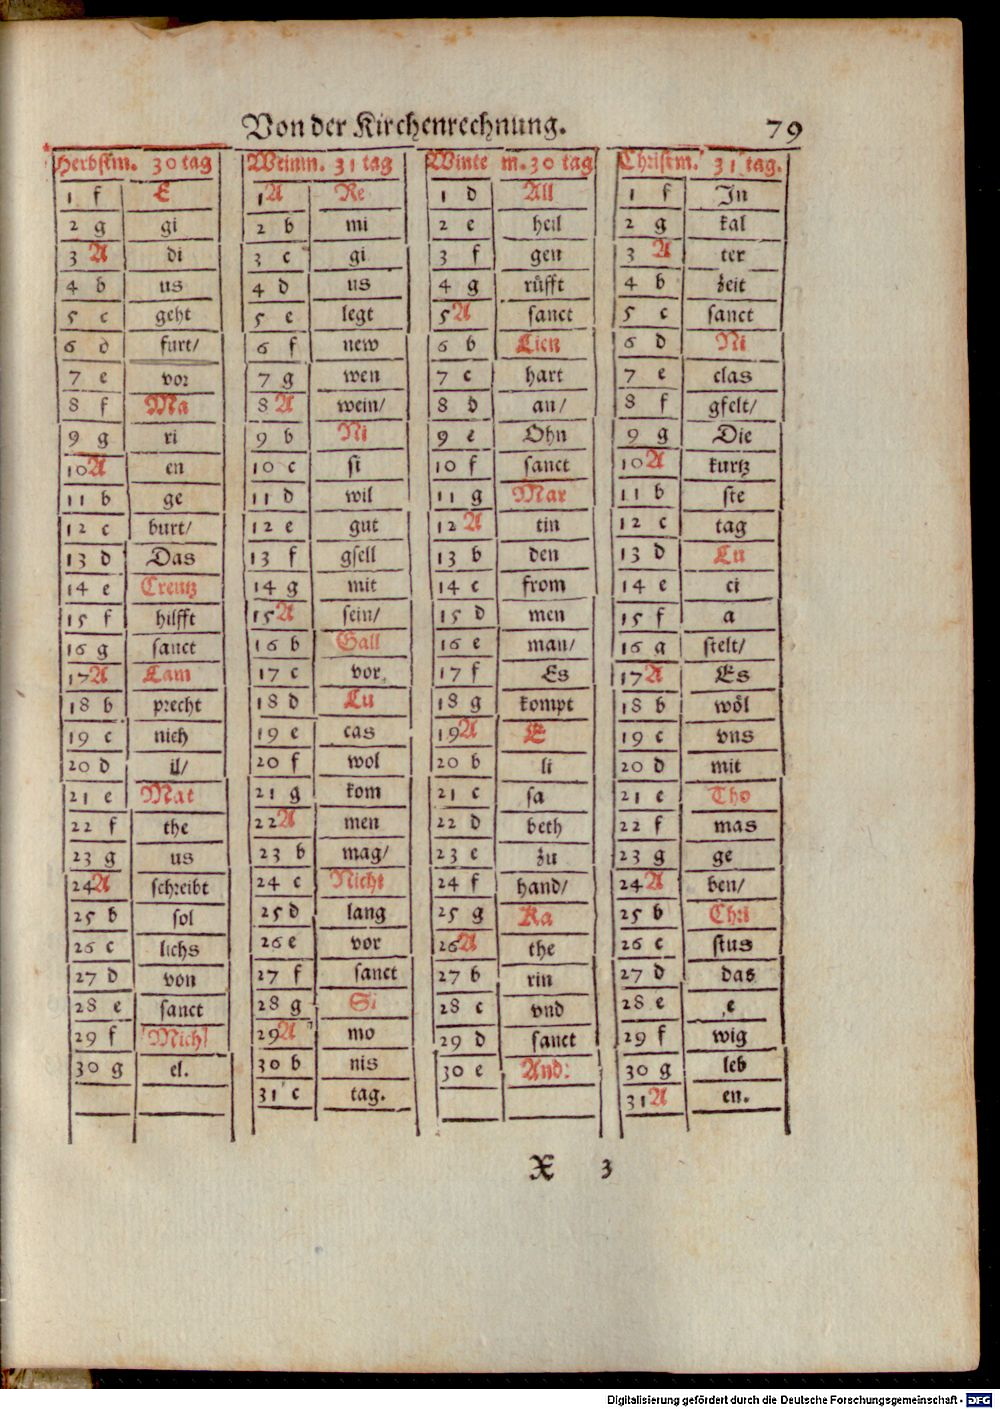 Von der Kirchenrechnung. 79
Herbstm. 30 tag | Weinm. 31 tag | Winte m. 30 tag | Christm. 31 tag.
1 f E | 1 A Re | 1 d All | 1 f In
2 g gi | 2 b mi | 2 e heil | 2 g kal
3 A di | 3 c gi | 3 f gen | 3 A ter
4 b us | 4 d us | 4 g rüfft | 4 b zeit
5 c geht | 5 e legt | 5 A sanct | 5 c sanct
6 d furt/ | 6 f new | 6 b Lien | 6 d Ni
7 e vor | 7 g wen | 7 c hart | 7 e clas
8 f Ma | 8 A wein/ | 8 d an/ | 8 f gselt/
9 g ri | 9 b Ni | 9 e Ohn | 9 g Die
10 A en | 10 c si | 10 f sanct | 10 A kurtz
11 b ge | 11 d wil | 11 g Mar | 11 b ste
12 c burt/ | 12 e gut | 12 A tin | 12 c tag
13 d Das | 13 f gsell | 13 b den | 13 d Lu
14 e Creutz | 14 g mit | 14 c from | 14 e ci
15 f hilfft | 15 A sein/ | 15 d men | 15 f a
16 g sanct | 16 b Gall | 16 e man/ | 16 g stelt/
17 A Lam | 17 c vor | 17 f Es | 17 A Es
18 b precht | 18 d Lu | 18 g kompt | 18 b wöl
19 c nich | 19 e cas | 19 A E | 19 c vns
20 d il/ | 20 f wol | 20 b li | 20 d mit
21 e Mat | 21 g kom | 21 c sa | 21 e Tho
22 f the | 22 A men | 22 d beth | 22 f mas
23 g us | 23 b mag/ | 23 e zu | 23 g ge
24 A schreibt | 24 c Nicht | 24 f hand/ | 24 A ben/
25 b sol | 25 d lang | 25 g Ka | 25 b Chri
26 c lichs | 26 e vor | 26 A the | 26 c stus
27 d von | 27 f sanct | 27 b rin | 27 d das
28 e sanct | 28 g Si | 28 c vnd | 28 e e
29 f Mich | 29 A mo | 29 d sanct | 29 f wig
30 g el. | 30 b nis | 30 e And: | 30 g leb
31 c tag. | 31 A en.
X 3
Digitalisierung gefördert durch die Deutsche Forschungsgemeinschaft - DFG